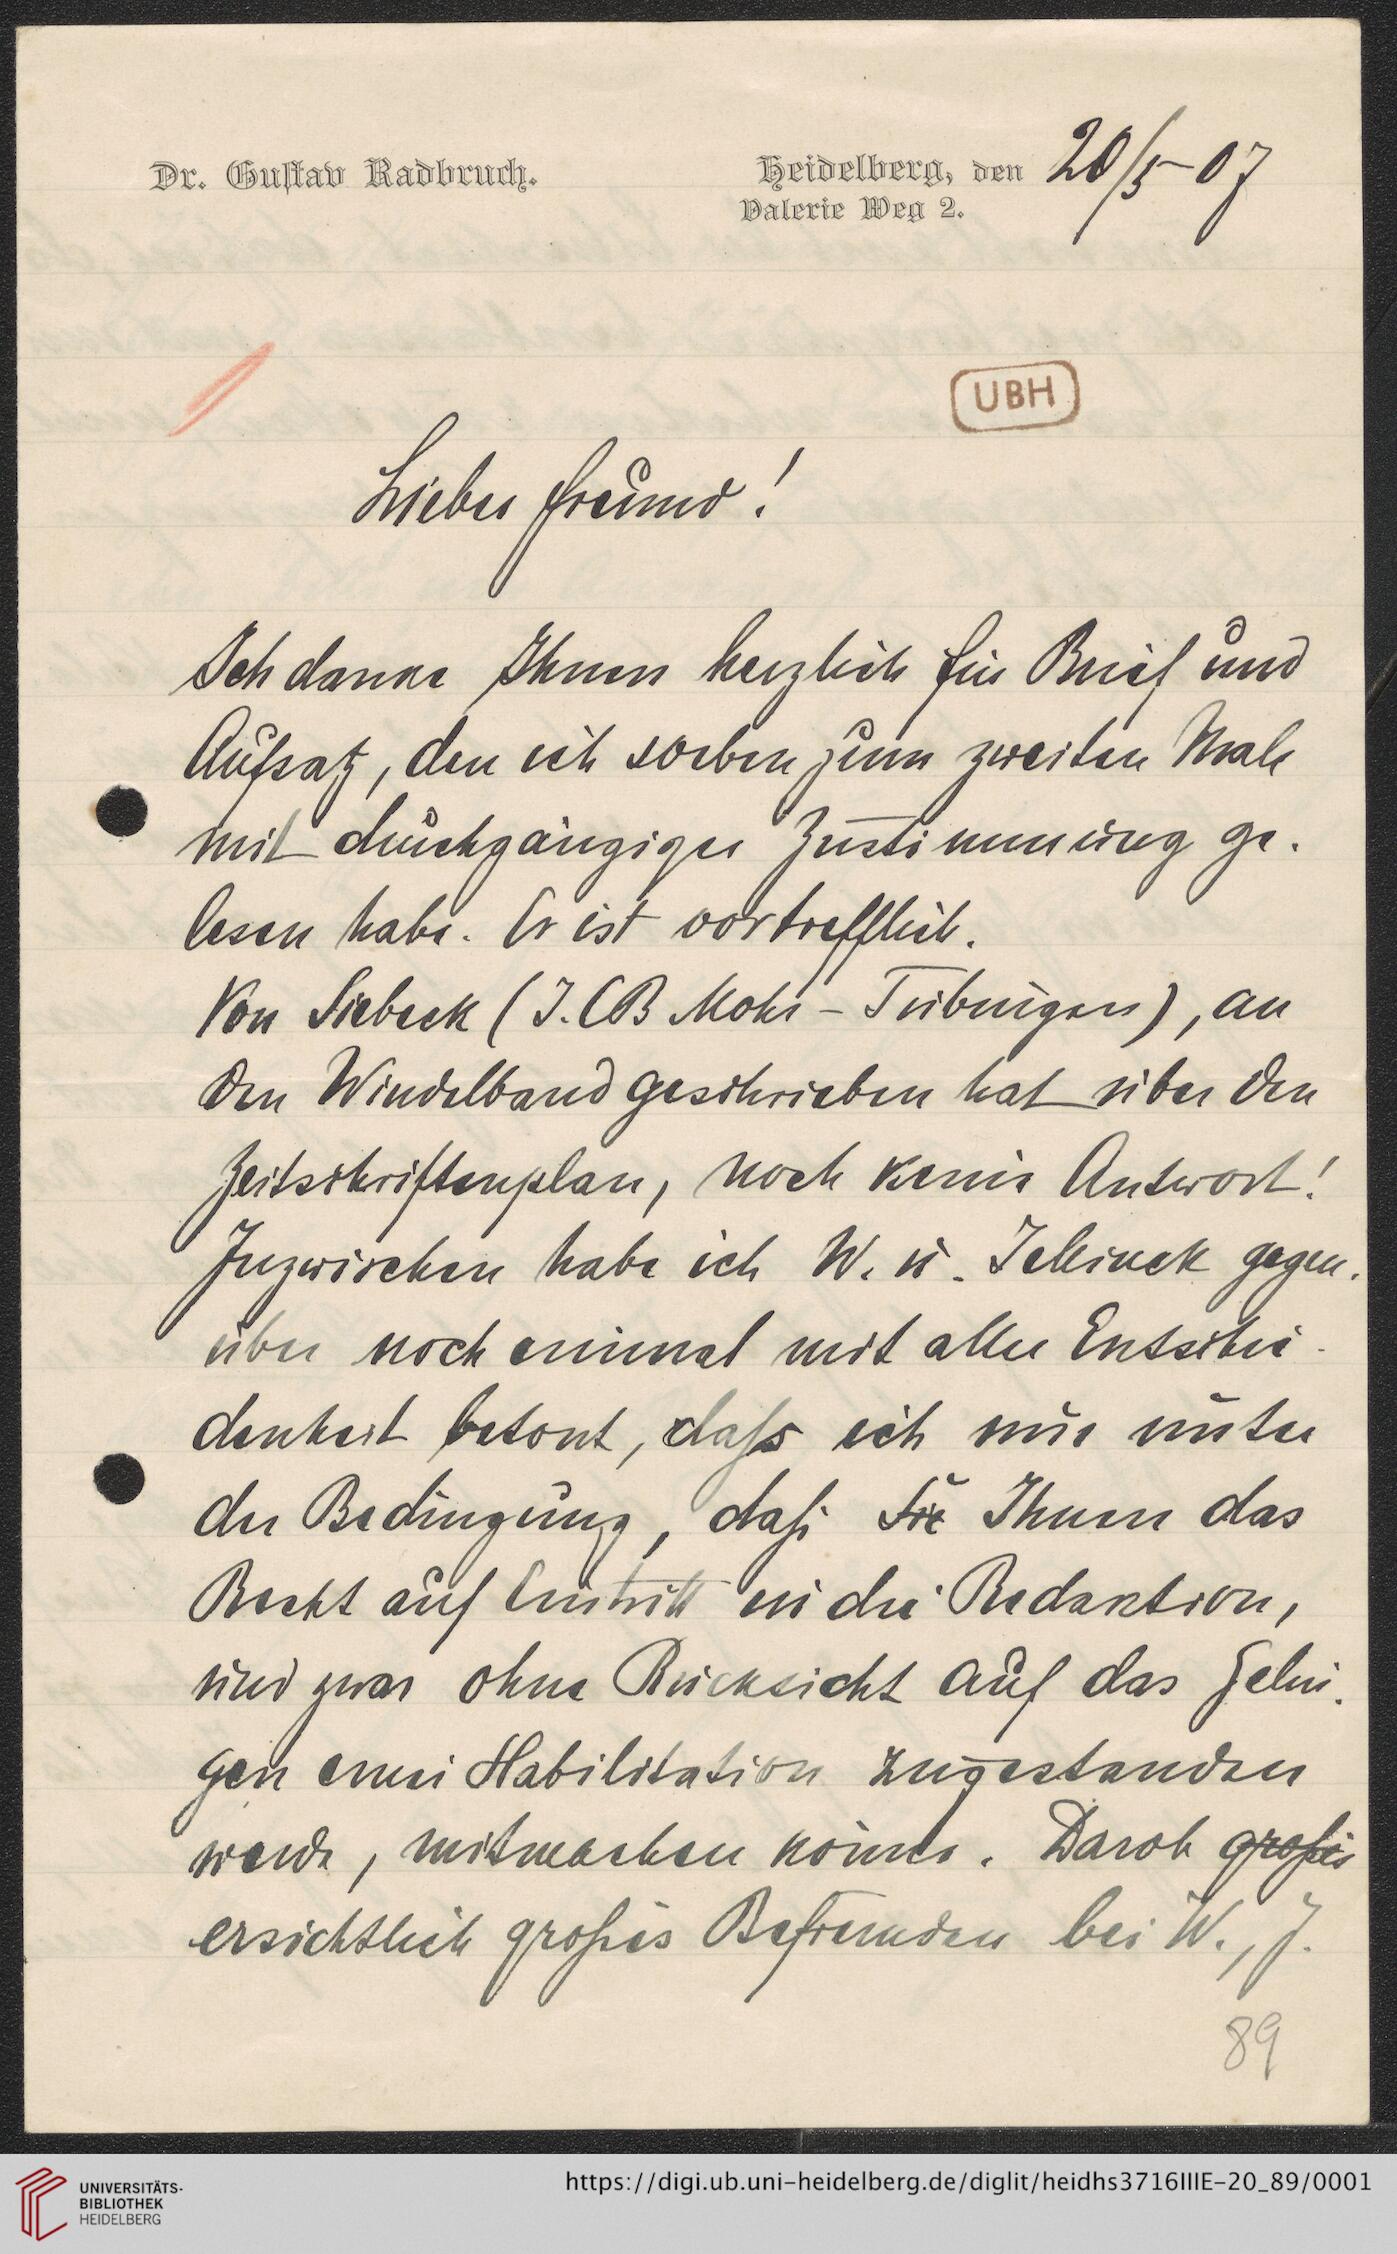 Dr. Gustav Radbruch.
Heidelberg, den 20/5 07
Valerie Weg 2.
UBH
Lieber Freund!
Ich danke Ihnen herzlich für Brief und
Aufsatz, den ich soeben zum zweiten Male
mit durchgängiger Zustimmung ge-
lesen habe. Er ist vortrefflich.
Von Siebeck (J.CB Mohr - Tübingen), an
den Windelband geschrieben hat über den
Zeitschriftenplan, noch keine Antwort!
Inzwischen habe ich W. u. Jellinek gegen-
über noch einmal mit aller Entschie-
denheit betont, dass ich nur unter
der Bedingung, daß Sie Ihnen das
Recht auf Eintritt in die Redaktion,
und zwar ohne Rücksicht auf das Gelin-
gen einer Habilitation zugestanden
werde, mitmachen könne. Darob großes
ersichtlich großes Befremden bei W., J.
89
UNIVERSITÄTS-
BIBLIOTHEK
HEIDELBERG
https://digi.ub.uni-heidelberg.de/diglit/heidhs3716IIIE-20_89/0001